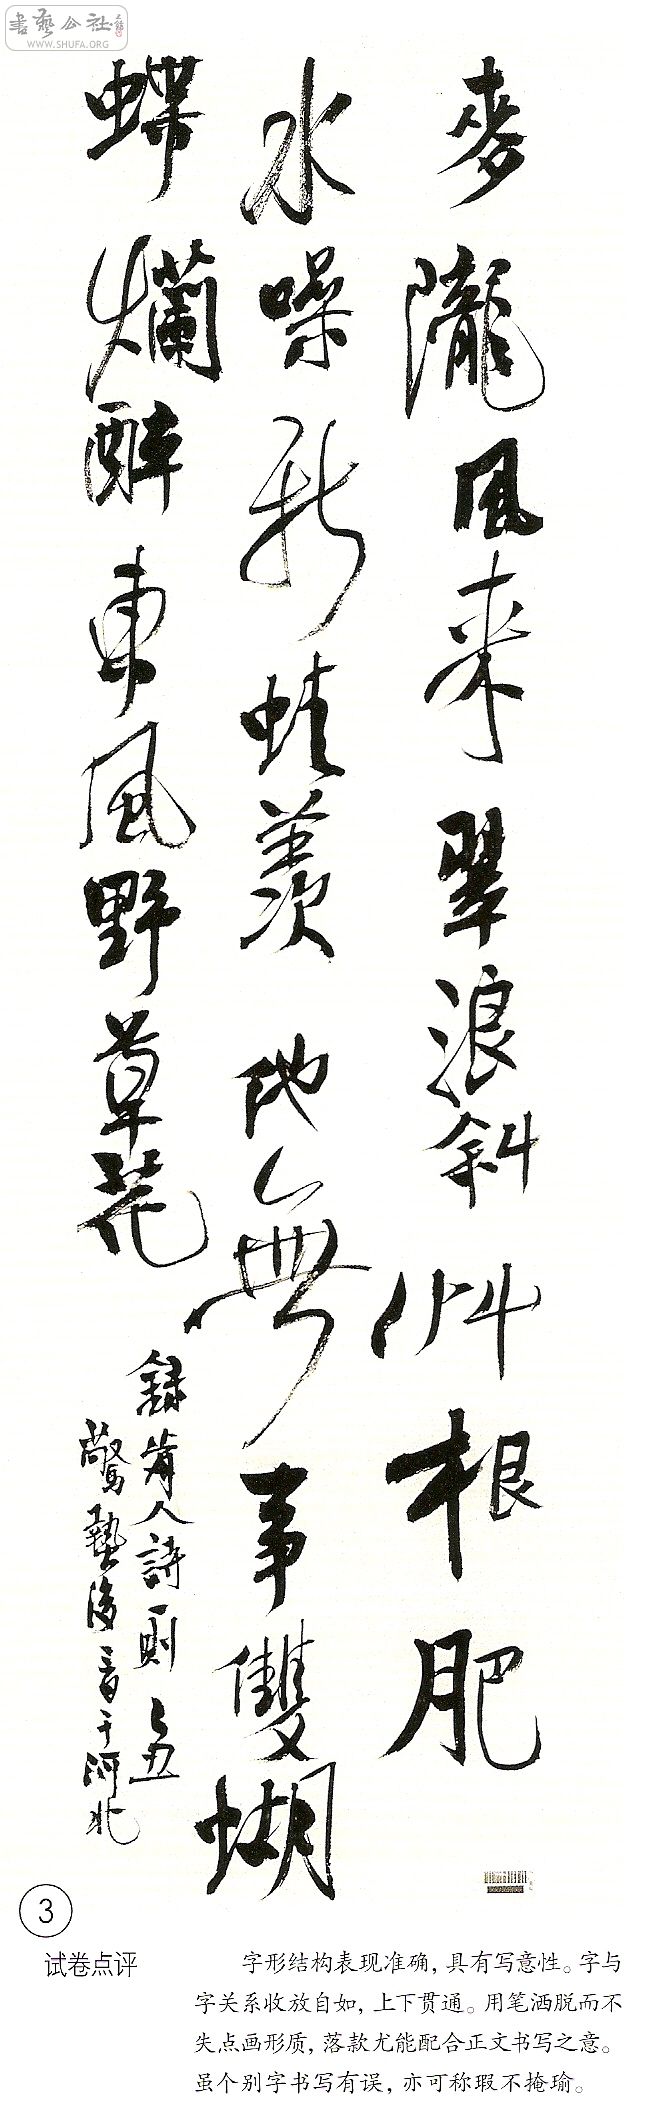 書藝公社
WWW.SHUFA.ORG
麥隴風來翠浪斜艸根肥
水噪新蛙羨他無事雙蝴
蝶爛醉東風野草花
錄前人詩一則 丑
驚蟄後于河北
3
试卷点评
字形结构表现准确，具有写意性。字与
字关系收放自如，上下贯通。用笔洒脱而不
失点画形质，落款尤能配合正文书写之意。
虽个别字书写有误，亦可称瑕不掩瑜。